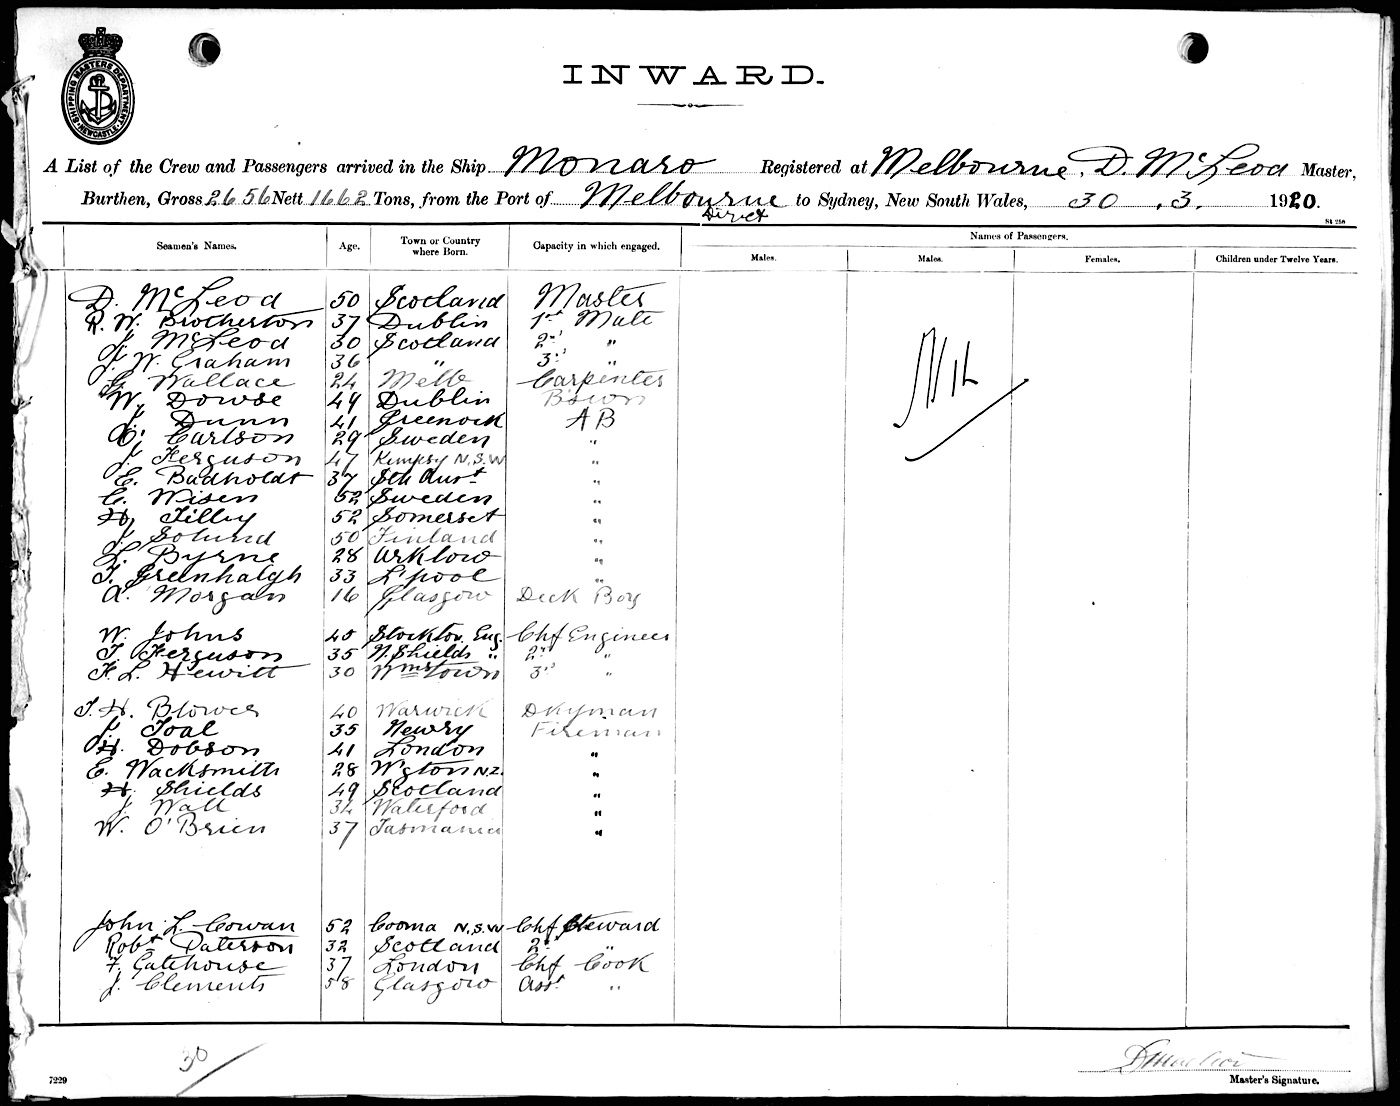 SHIPPING MASTERS DEPARTMENT
NEWCASTLE
INWARD.
A List of the Crew and Passengers arrived in the Ship Monaro Registered at Melbourne, D. McLeod Master,
Burthen, Gross 2656 Nett 1662 Tons, from the Port of Melbourne to Sydney, New South Wales, 30 . 3. 1920.
Direct
S1 256
Seamen's Names. Age. Town or Country where Born. Capacity in which engaged. Names of Passengers.
Males. Males. Females. Children under Twelve Years.
D. McLeod 50 Scotland Master
R. W. Brotherton 37 Dublin 1st Mate
J. McLeod 30 Scotland 2nd "
J. W. Graham 36 " 3rd "
Nil
G. Wallace 24 Melb Carpenter
W. Dowse 49 Dublin B'swn
J. Dunn 41 Greenock AB
C. Carlson 29 Sweden "
J. Ferguson 47 Kempsy N.S.W "
E. Badholdt 37 Sth Aust "
C. Wisen 52 Sweden "
H. Tilley 52 Somerset "
J. Solund 50 Finland "
L. Byrne 28 Arklow "
T. Greenhalgh 33 L'pool "
A. Morgan 16 Glasgow Deck Boy
W. Johns 40 Stockton Eng. Chf Engineer
T. Ferguson 35 N. Shields " 2nd "
F. L. Hewitt 30 Wmstown 3rd "
T. H. Blower 40 Warwick Dkyman
J. Toal 35 Newry Fireman
H. Dobson 41 London "
E. Wacksmith 28 W'gton N.Z. "
H. Shields 49 Scotland "
J. Wall 34 Waterford "
W. O'Brien 37 Tasmania "
John L. Cowan 52 Cooma N.S.W Chf Steward
Robt Paterson 32 Scotland 2nd "
F. Gatehouse 37 London Chf Cook
J. Clements 58 Glasgow Asst "
30
7229
Master's Signature.